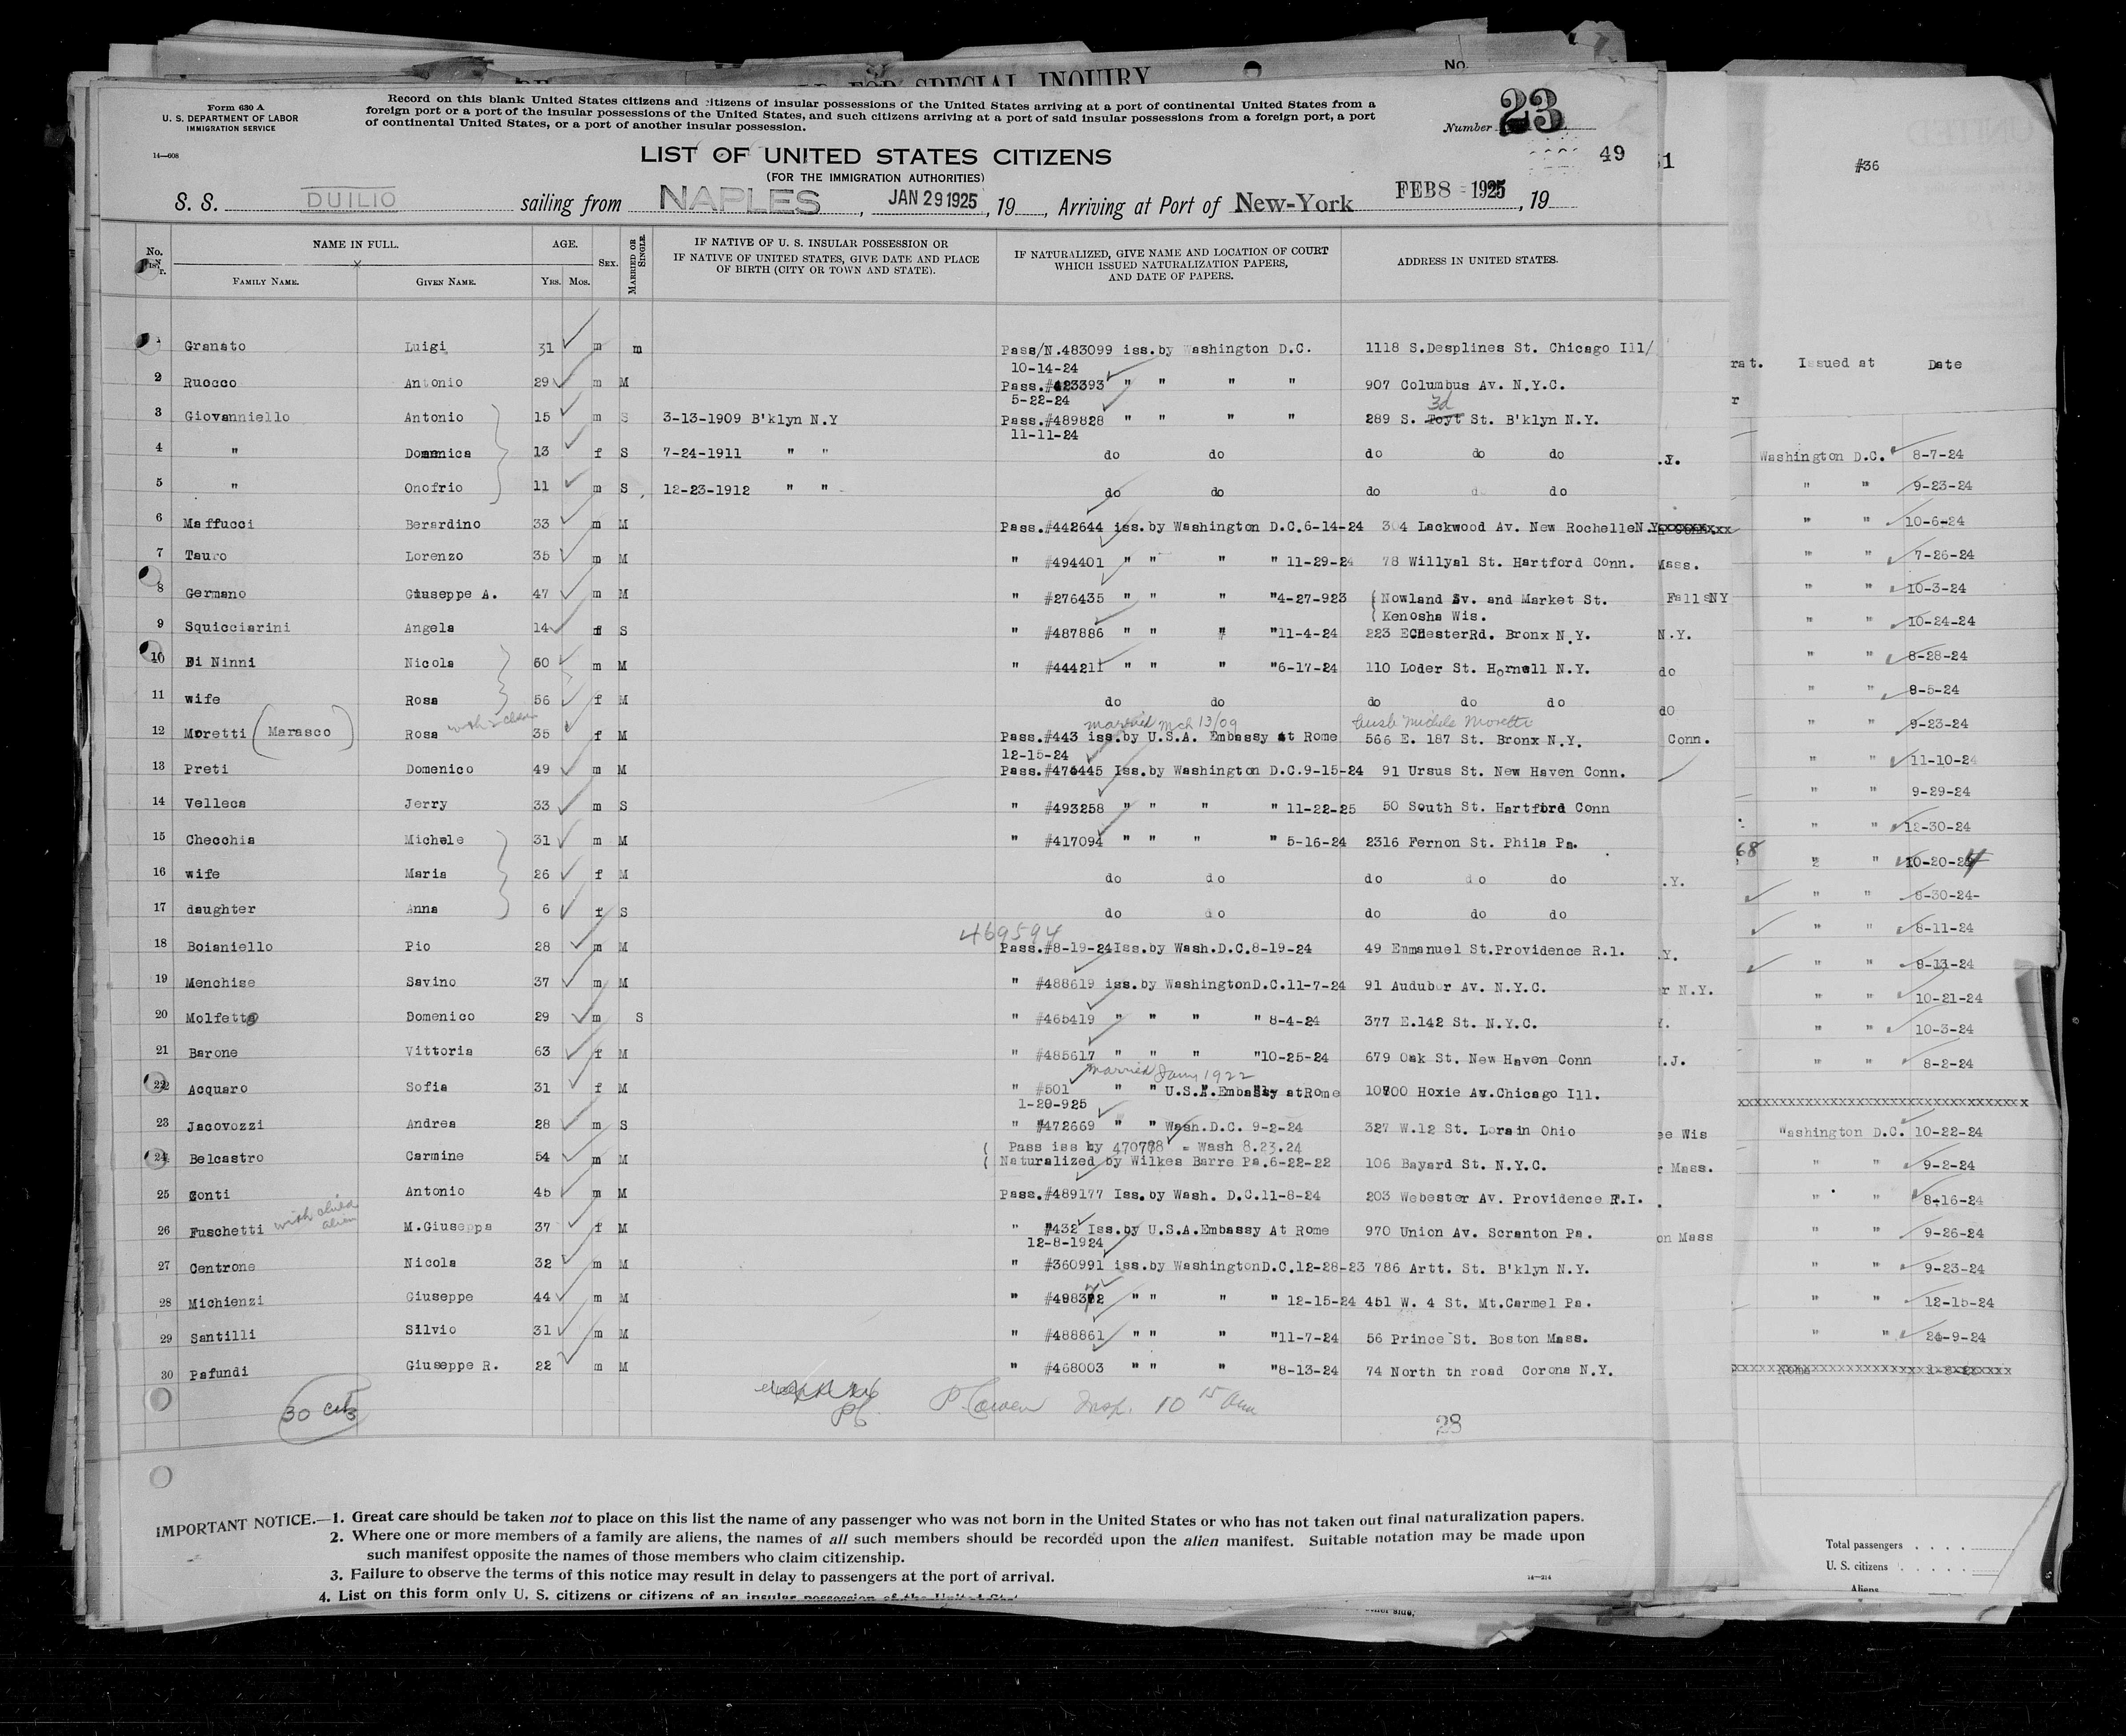 FOR SPECIAL INQUIRY
No.
Form 630 A
U. S. DEPARTMENT OF LABOR
IMMIGRATION SERVICE
14—608
Record on this blank United States citizens and citizens of insular possessions of the United States arriving at a port of continental United States from a
foreign port or a port of the insular possessions of the United States, and such citizens arriving at a port of said insular possessions from a foreign port, a port
of continental United States, or a port of another insular possession.
Number 23
49
LIST OF UNITED STATES CITIZENS
(FOR THE IMMIGRATION AUTHORITIES)
S. S. DUILIO sailing from NAPLES, JAN 29 1925, 19, Arriving at Port of New-York FEB 8 - 1925, 19
No. NAME IN FULL. AGE. SEX. MARRIED OR SINGLE. IF NATIVE OF U. S. INSULAR POSSESSION OR IF NATIVE OF UNITED STATES, GIVE DATE AND PLACE OF BIRTH (CITY OR TOWN AND STATE). IF NATURALIZED, GIVE NAME AND LOCATION OF COURT WHICH ISSUED NATURALIZATION PAPERS, AND DATE OF PAPERS. ADDRESS IN UNITED STATES.
FAMILY NAME. GIVEN NAME. YRS. MOS.
1 Granato Luigi 31 m m Pass/N.483099 iss.by Washington D.C. 1118 S.Desplines St. Chicago Ill/
10-14-24
2 Ruocco Antonio 29 m M Pass.#423393 " " " " 907 Columbus Av. N.Y.C.
5-22-24
3d
3 Giovanniello Antonio 15 m S 3-13-1909 B'klyn N.Y Pass.#489828 " " " " 289 S. Toyt St. B'klyn N.Y.
11-11-24
4 " Domenica 13 f S 7-24-1911 " " do do do do do
5 " Onofrio 11 m S 12-23-1912 " " do do do do do
6 Maffucci Berardino 33 m M Pass.#442644 iss.by Washington D.C.6-14-24 304 Lackwood Av. New RochelleN.Y
7 Tauro Lorenzo 35 m M " #494401 " " " " 11-29-24 78 Willyal St. Hartford Conn.
8 Germano Giuseppe A. 47 m M " #276435 " " " "4-27-923 Nowland Av. and Market St.
Kenosha Wis.
9 Squicciarini Angela 14 f S " #487886 " " " "11-4-24 223 EChesterRd. Bronx N.Y.
10 Di Ninni Nicola 60 m M " #444211 " " " "6-17-24 110 Loder St. Hornell N.Y.
11 wife Rosa 56 f M do do do do do
married Mch 13/09
12 Moretti (Marasco) Rosa 35 f M Pass.#443 iss.by U.S.A. Embassy at Rome 566 E. 187 St. Bronx N.Y.
12-15-24
13 Preti Domenico 49 m M Pass.#476445 Iss.by Washington D.C.9-15-24 91 Ursus St. New Haven Conn.
14 Velleca Jerry 33 m S " #493258 " " " " 11-22-25 50 South St. Hartford Conn
15 Checchia Michele 31 m M " #417094 " " " " 5-16-24 2316 Fernon St. Phila Pa.
16 wife Maria 26 f M do do do do do
17 daughter Anna 6 f S do do do do do
469594
18 Boianiello Pio 28 m M Pass.#8-19-24Iss.by Wash.D.C.8-19-24 49 Emmanuel St.Providence R.l.
19 Menchise Savino 37 m M " #488619 iss.by WashingtonD.C.11-7-24 91 Audubor Av. N.Y.C.
20 Molfetta Domenico 29 m S " #465419 " " " " 8-4-24 377 E.142 St. N.Y.C.
21 Barone Vittoria 63 f M " #485617 " " " "10-25-24 679 Oak St. New Haven Conn
married Jany 1922
22 Acquaro Sofia 31 f M " #501 " " U.S.A.Embassy atRome 10900 Hoxie Av.Chicago Ill.
1-20-925
23 Jacovozzi Andrea 28 m S " #472669 " " Wash.D.C. 9-2-24 327 W.12 St. Lorain Ohio
Pass iss by 470778 = Wash 8.23.24
24 Belcastro Carmine 54 m M Naturalized by Wilkes Barre Pa.6-22-22 106 Bayard St. N.Y.C.
25 Conti Antonio 45 m M Pass.#489177 Iss.by Wash. D.C.11-8-24 203 Webester Av. Providence R.I.
with child alien
26 Fuschetti M.Giuseppa 37 f M " #432 Iss.by U.S.A.Embassy At Rome 970 Union Av. Scranton Pa.
12-8-1924
27 Centrone Nicola 32 m M " #360991 iss.by WashingtonD.C.12-28-23 786 Artt. St. B'klyn N.Y.
28 Michienzi Giuseppe 44 m M " #498372 " " " " 12-15-24 451 W. 4 St. Mt.Carmel Pa.
29 Santilli Silvio 31 m M " #488861 " " " "11-7-24 56 Prince St. Boston Mass.
30 Pafundi Giuseppe R. 22 m M " #468003 " " " "8-13-24 74 North th road Corona N.Y.
30 cits
P. Cowen Insp. 10 15 am
28
IMPORTANT NOTICE.—1. Great care should be taken not to place on this list the name of any passenger who was not born in the United States or who has not taken out final naturalization papers.
2. Where one or more members of a family are aliens, the names of all such members should be recorded upon the alien manifest. Suitable notation may be made upon
such manifest opposite the names of those members who claim citizenship.
3. Failure to observe the terms of this notice may result in delay to passengers at the port of arrival.
14—214
4. List on this form only U. S. citizens or citizens of an insular possession of the United
51
.Y.
Mass.
Falls NY
N.Y.
do
do
Conn.
68
.Y.
Y.
r N.Y.
Y.
.J.
ee Wis
r Mass.
on Mass
#36
rat. Issued at Date
Washington D.C. 8-7-24
" " 9-23-24
" " 10-6-24
" " 7-26-24
" " 10-3-24
" " 10-24-24
" " 8-28-24
" " 8-5-24
" " 9-23-24
" " 11-10-24
" " 9-29-24
" " 12-30-24
" " 10-20-24
" " 8-30-24-
" " 8-11-24
" " 8-13-24
" " 10-21-24
" " 10-3-24
" " 8-2-24
xxxxxxxxxxxxxxxxxxxxxxxxxxxxxxxx
Washington D.C. 10-22-24
" " 9-2-24
" " 8-16-24
" " 9-26-24
" " 9-23-24
" " 12-15-24
" " 24-9-24
Rome
Total passengers
U. S. citizens
Aliens